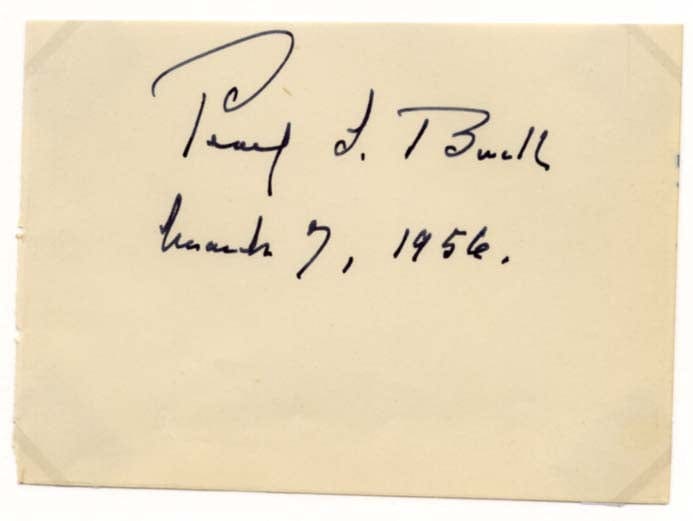 Pearl S. Buck
March 7, 1956.